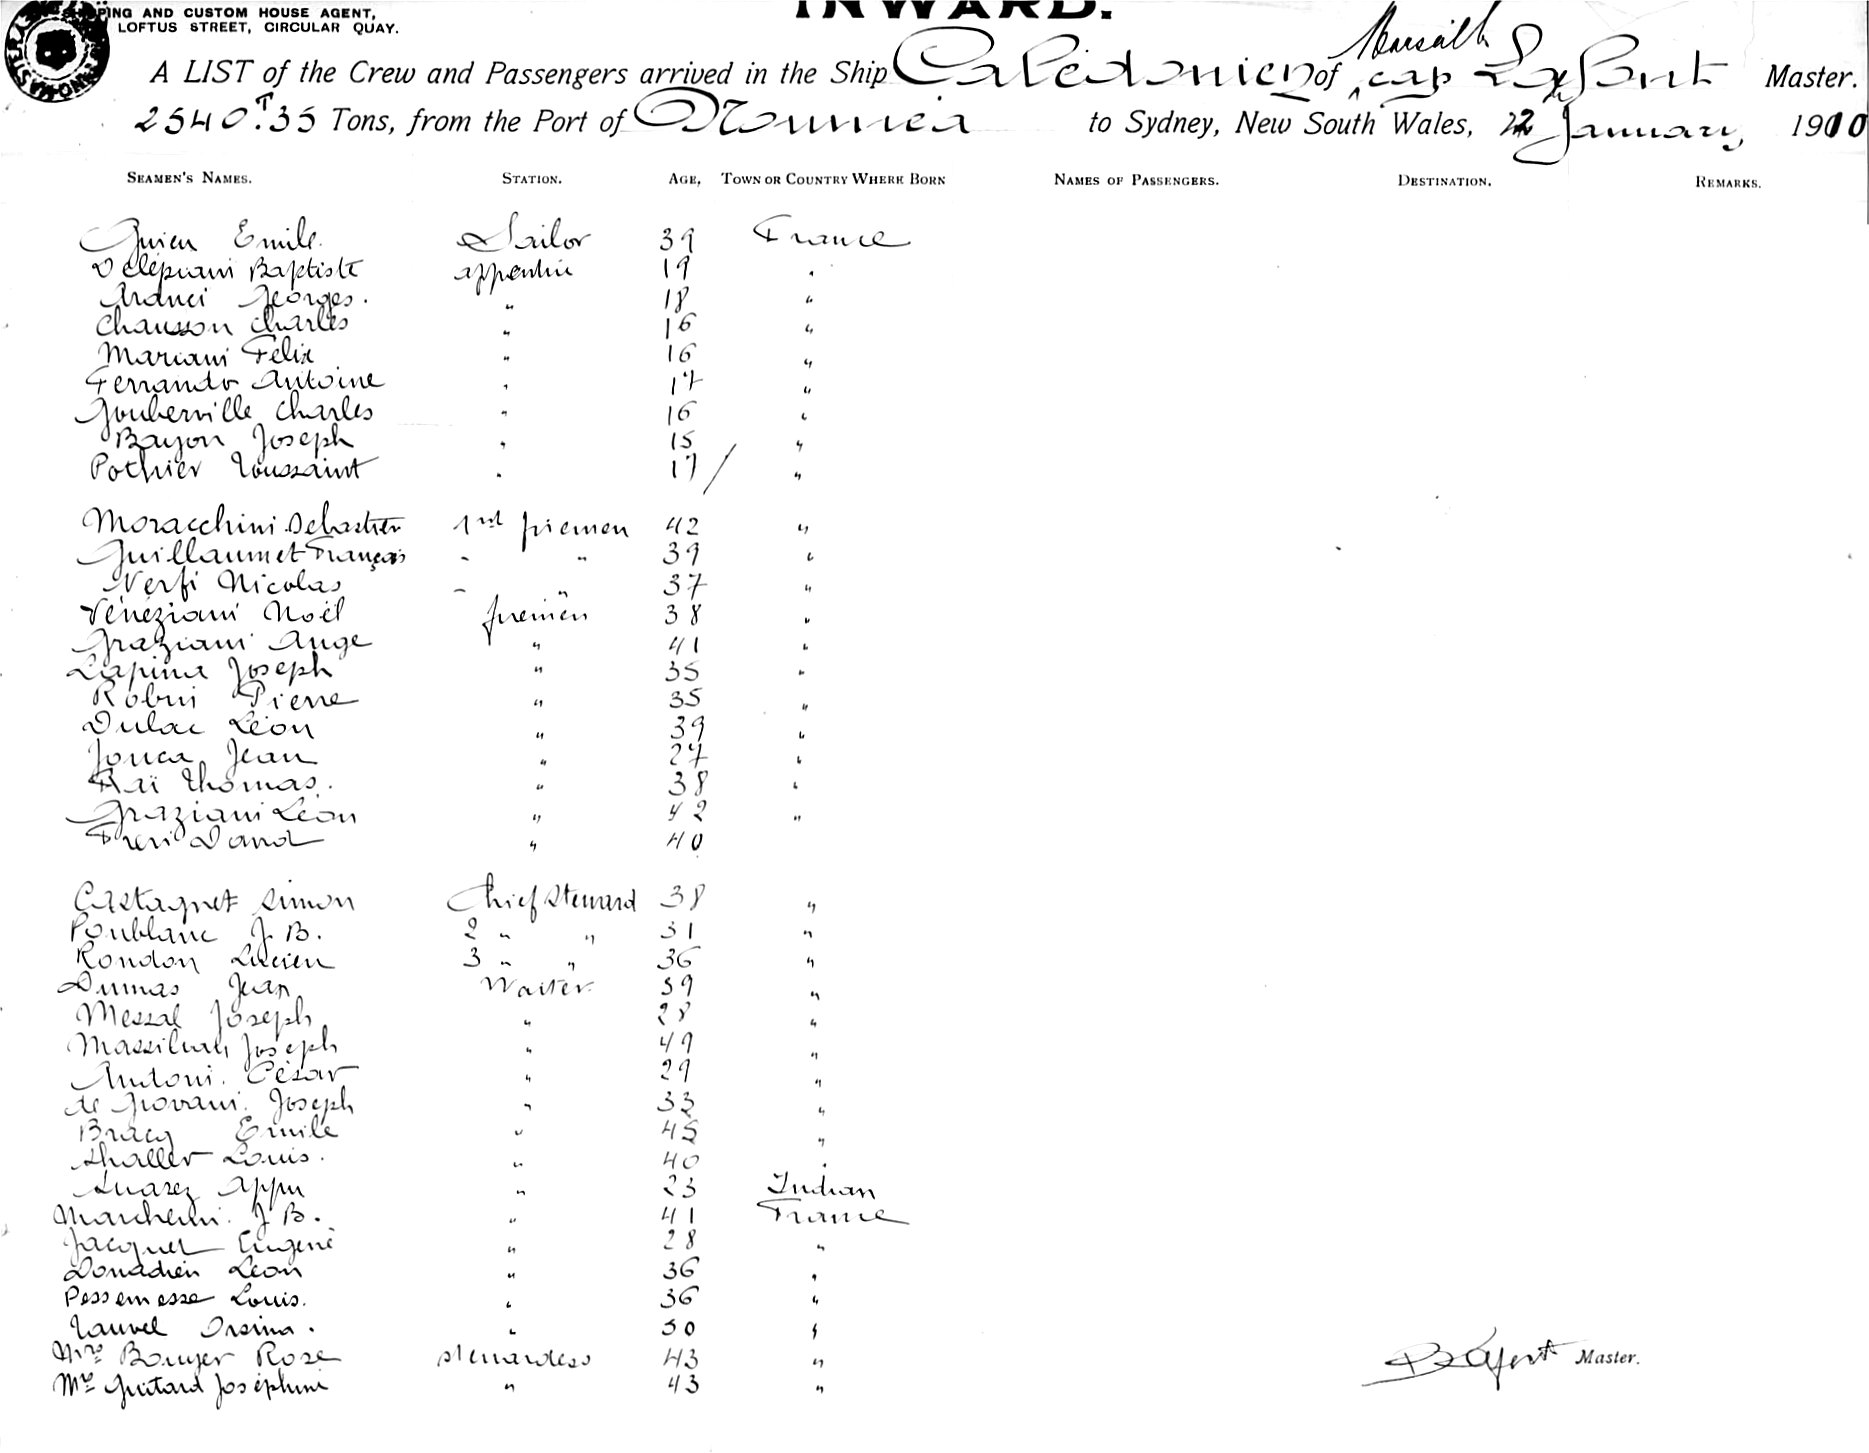 PING AND CUSTOM HOUSE AGENT,
LOFTUS STREET, CIRCULAR QUAY.
INWARD.
Marseille
A LIST of the Crew and Passengers arrived in the Ship Calédonien of cap Lafont Master.
2540T.35 Tons, from the Port of Nouméa to Sydney, New South Wales, 22 January 1910
SEAMEN'S NAMES. STATION. AGE, TOWN OR COUNTRY WHERE BORN NAMES OF PASSENGERS. DESTINATION. REMARKS.
Guien Emile. Sailor 39 France
Délépiani Baptiste 19 "
Georges. " 18 "
Chausson Charles " 16 "
Mariani Félix " 16 "
Ferrando Antoine " 17 "
Gouberville Charles " 16 "
Bayon Joseph " 15 "
Pothier Toussaint " 17 / "
Moracchini Sébastien 1rst firemen 42 "
Guillaumet François " " 39 "
Nerfi Nicolas " " 37 "
Vénéziani Noël firemen 38 "
Graziani Ange " 41 "
Lapina Joseph " 35 "
Robini Pierre " 35 "
Dulac Léon " 39 "
Jouca Jean " 27 "
Raï Thomas. " 38 "
Graziani Léon " 42 "
David " 40
Castagnet Simon Chief Steward 38 "
Poublanc J. B. 2 " " 31 "
Rondon Lucien 3 " " 36 "
Dumas Jean Waiter 39 "
Messal Joseph " 28 "
Joseph " 49 "
Antoni. César " 29 "
de Giovani. Joseph " 33 "
Bracq Emile " 45 "
Shaller Louis. " 40 "
Suarez Appu " 23 Indian
J B. " 41 France
Jacquet Eugène " 28 "
Donadieu Léon " 36 "
Pessemesse Louis. " 36 "
Tauvel Orsina. " 50 "
Mrs Bouyer Rose stewardess 43 "
Mrs Guitard Joséphine " 43 "
Lafont Master.